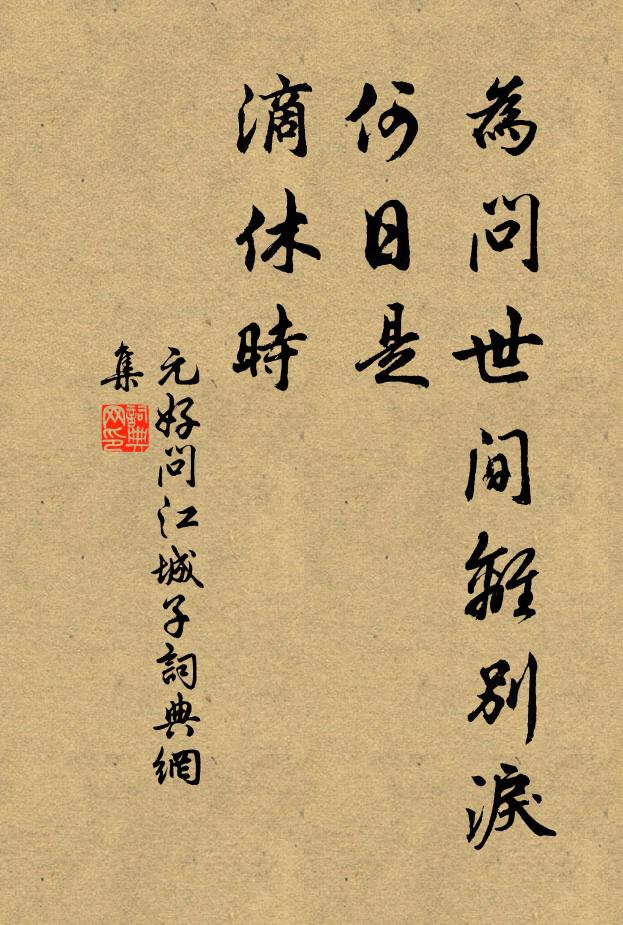 為問世間離別淚
何日是
滴休時
元好問江城子詞典網
集
詞典
网印